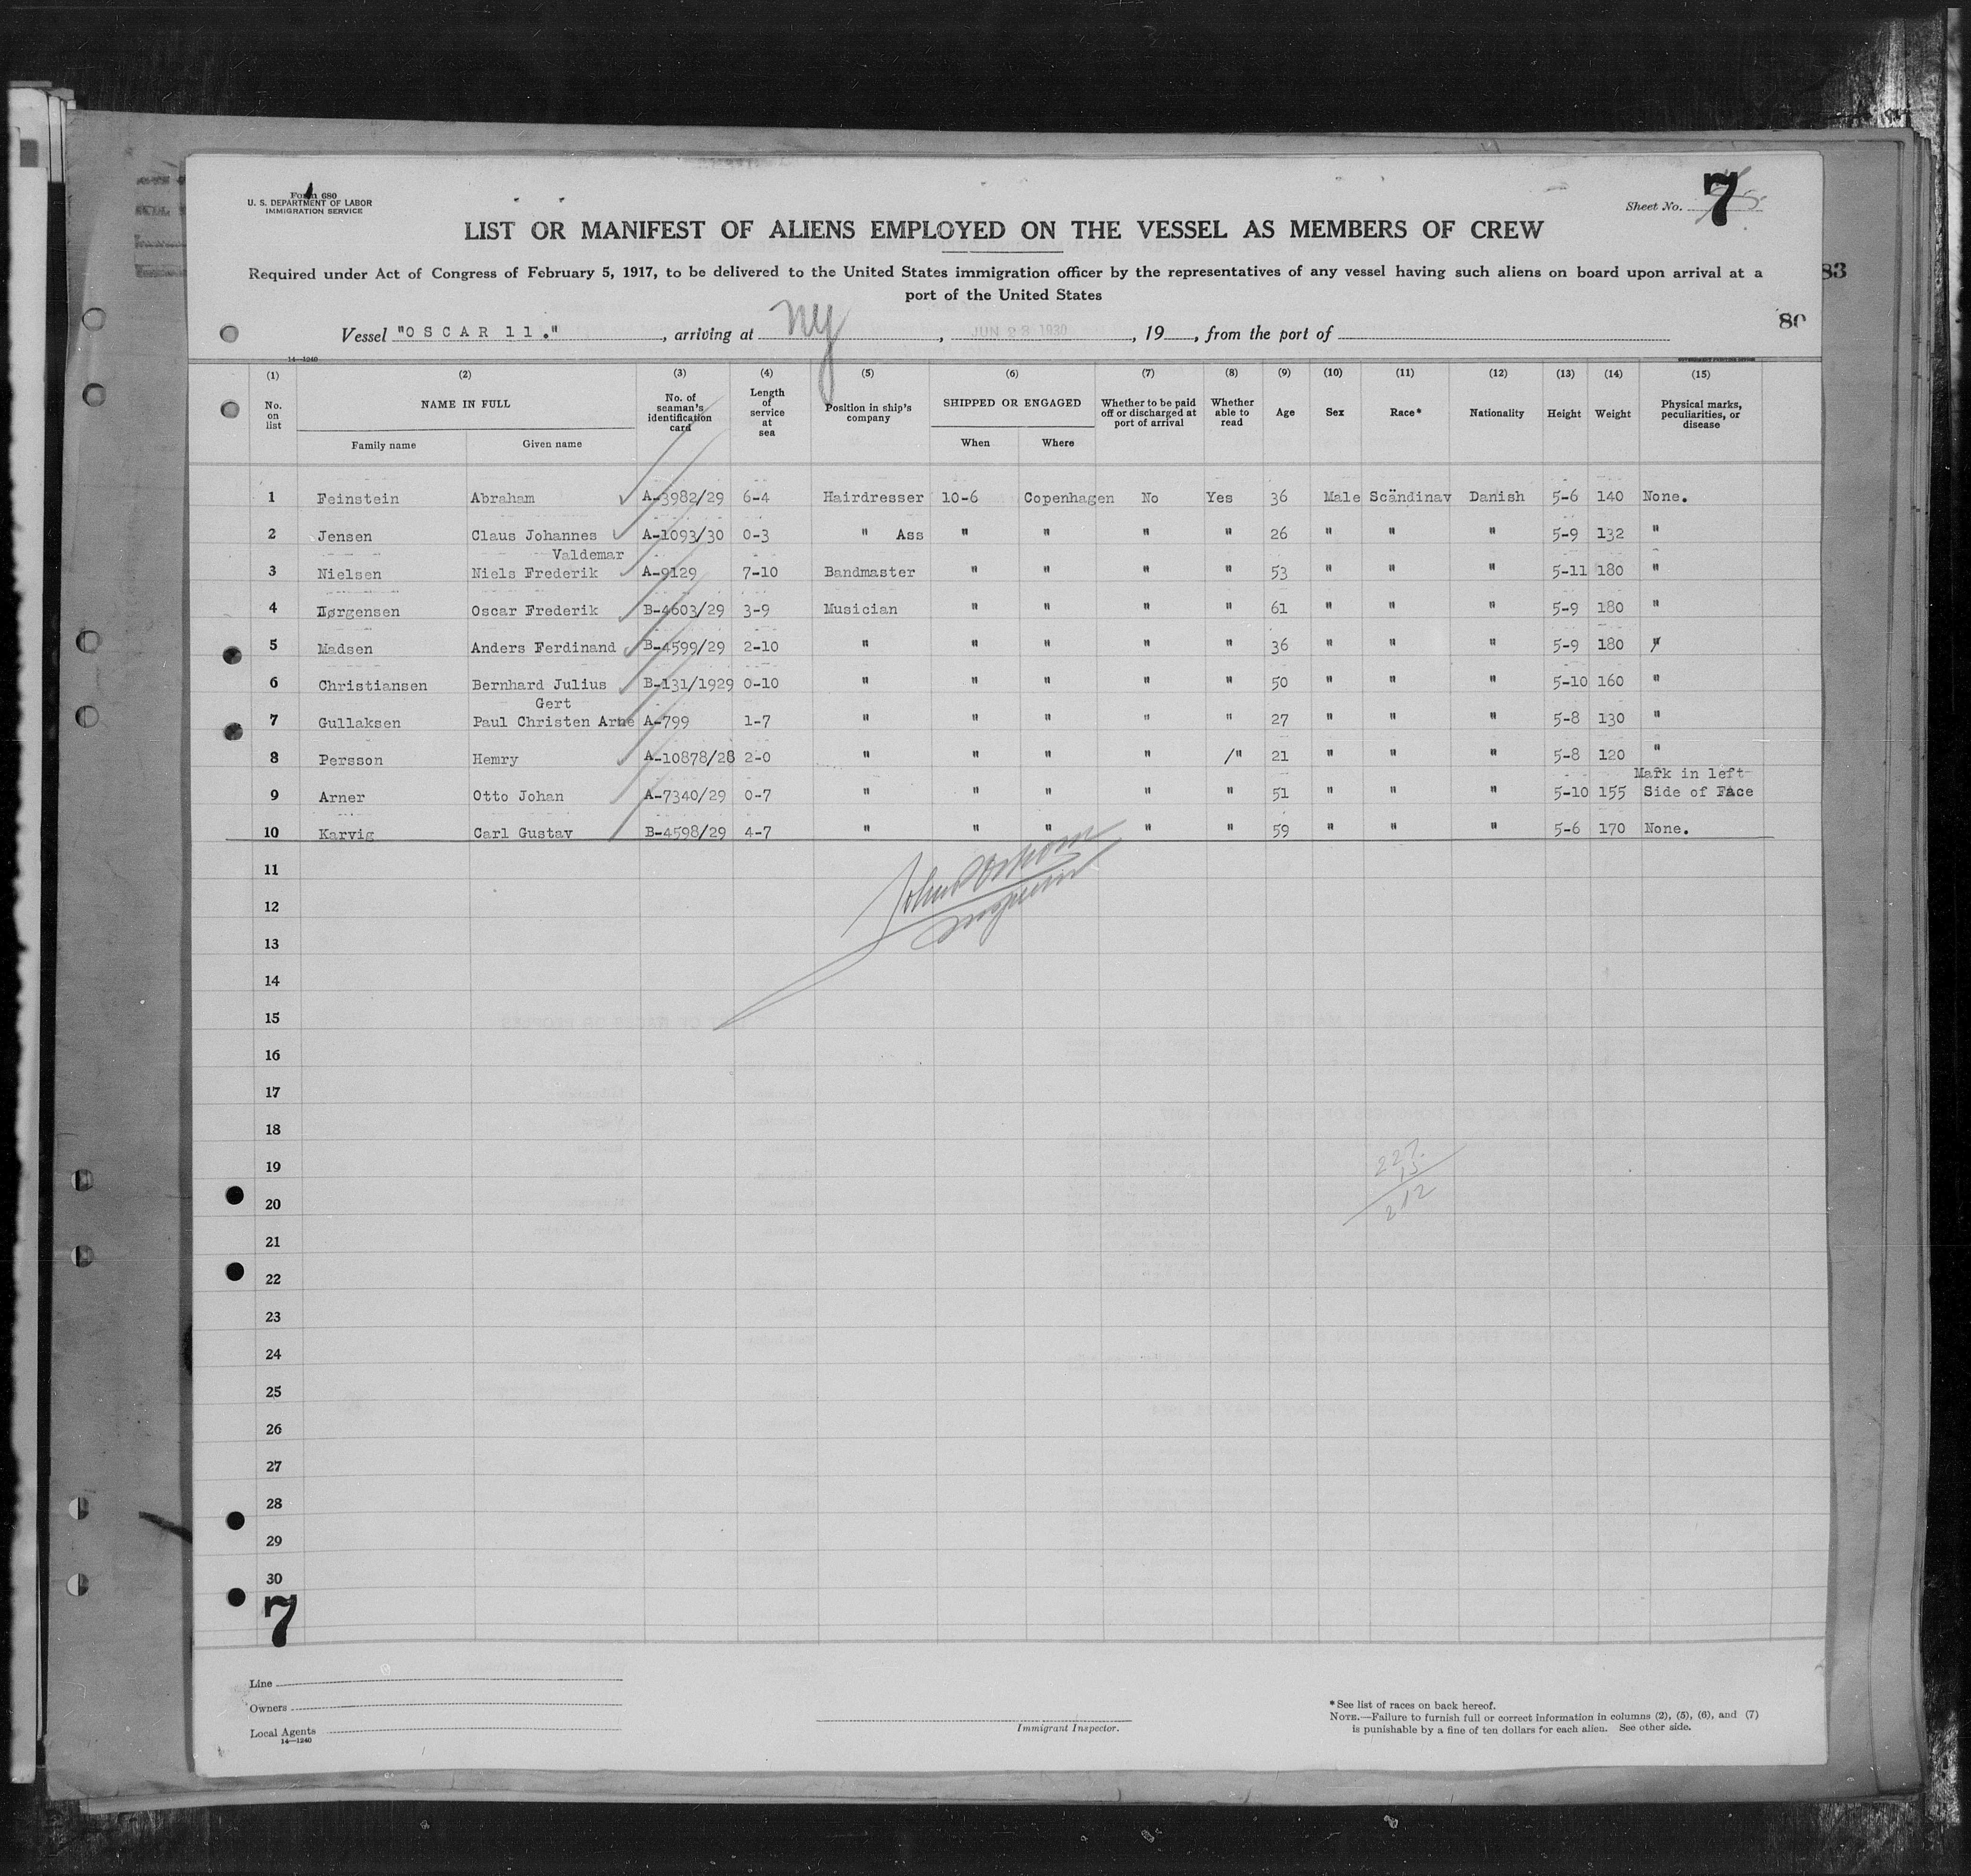 Form 680
U. S. DEPARTMENT OF LABOR
IMMIGRATION SERVICE
Sheet No. 7
LIST OR MANIFEST OF ALIENS EMPLOYED ON THE VESSEL AS MEMBERS OF CREW
Required under Act of Congress of February 5, 1917, to be delivered to the United States immigration officer by the representatives of any vessel having such aliens on board upon arrival at a
port of the United States
83
80
Vessel "OSCAR 11.", arriving at NY, JUN 28 1930, 19__, from the port of
14—1240
(1) (2) (3) (4) (5) (6) (7) (8) (9) (10) (11) (12) (13) (14) (15)
No. on list NAME IN FULL Family name Given name No. of seaman's identification card Length of service at sea Position in ship's company SHIPPED OR ENGAGED When Where Whether to be paid off or discharged at port of arrival Whether able to read Age Sex Race* Nationality Height Weight Physical marks, peculiarities, or disease
1 Feinstein Abraham A-3982/29 6-4 Hairdresser 10-6 Copenhagen No Yes 36 Male Scandinav Danish 5-6 140 None.
2 Jensen Claus Johannes A-1093/30 0-3 " Ass " " " " 26 " " " 5-9 132 "
Valdemar
3 Nielsen Niels Frederik A-9129 7-10 Bandmaster " " " " 53 " " " 5-11 180 "
4 Jørgensen Oscar Frederik B-4603/29 3-9 Musician " " " " 61 " " " 5-9 180 "
5 Madsen Anders Ferdinand B-4599/29 2-10 " " " " " 36 " " " 5-9 180 "
6 Christiansen Bernhard Julius B-131/1929 0-10 " " " " " 50 " " " 5-10 160 "
Gert
7 Gullaksen Paul Christen Arne A-799 1-7 " " " " " 27 " " " 5-8 130 "
8 Persson Hemry A-10878/28 2-0 " " " " /" 21 " " " 5-8 120 "
Mark in left
9 Arner Otto Johan A-7340/29 0-7 " " " " " 51 " " " 5-10 155 Side of Face
10 Karvig Carl Gustav B-4598/29 4-7 " " " " " 59 " " " 5-6 170 None.
11
12
13
14
15
16
17
18
19
20
21
22
23
24
25
26
27
28
29
30
227
15
212
7
Line
Owners
Local Agents
14—1240
Immigrant Inspector.
*See list of races on back hereof.
NOTE.—Failure to furnish full or correct information in columns (2), (5), (6), and (7)
is punishable by a fine of ten dollars for each alien. See other side.